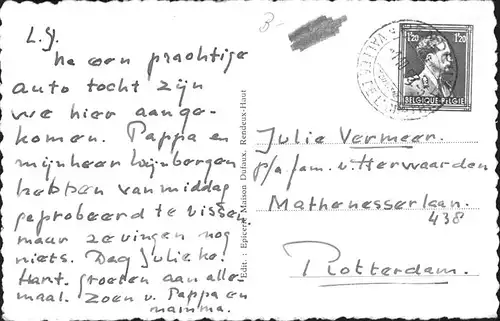 L.J.
na een prachtige
auto tocht zijn
we hier aange-
komen. Pappa en
mijnheer Wijnbergen
hebben vanmiddag
geprobeerd te vissen,
maar ze vingen nog
niets. Dag Julieke!
Hart. groeten aan alle-
maal. Zoen v. Pappa en
mamma.
Edit. : Epicerie-Maison Dufaux. Rendeux-Haut
3-
1.20 1.20
BELGIQUE-BELGIE
Julie Vermeer.
p/a fam. v. Herwaarden
Mathenesserlaan.
438
Rotterdam.